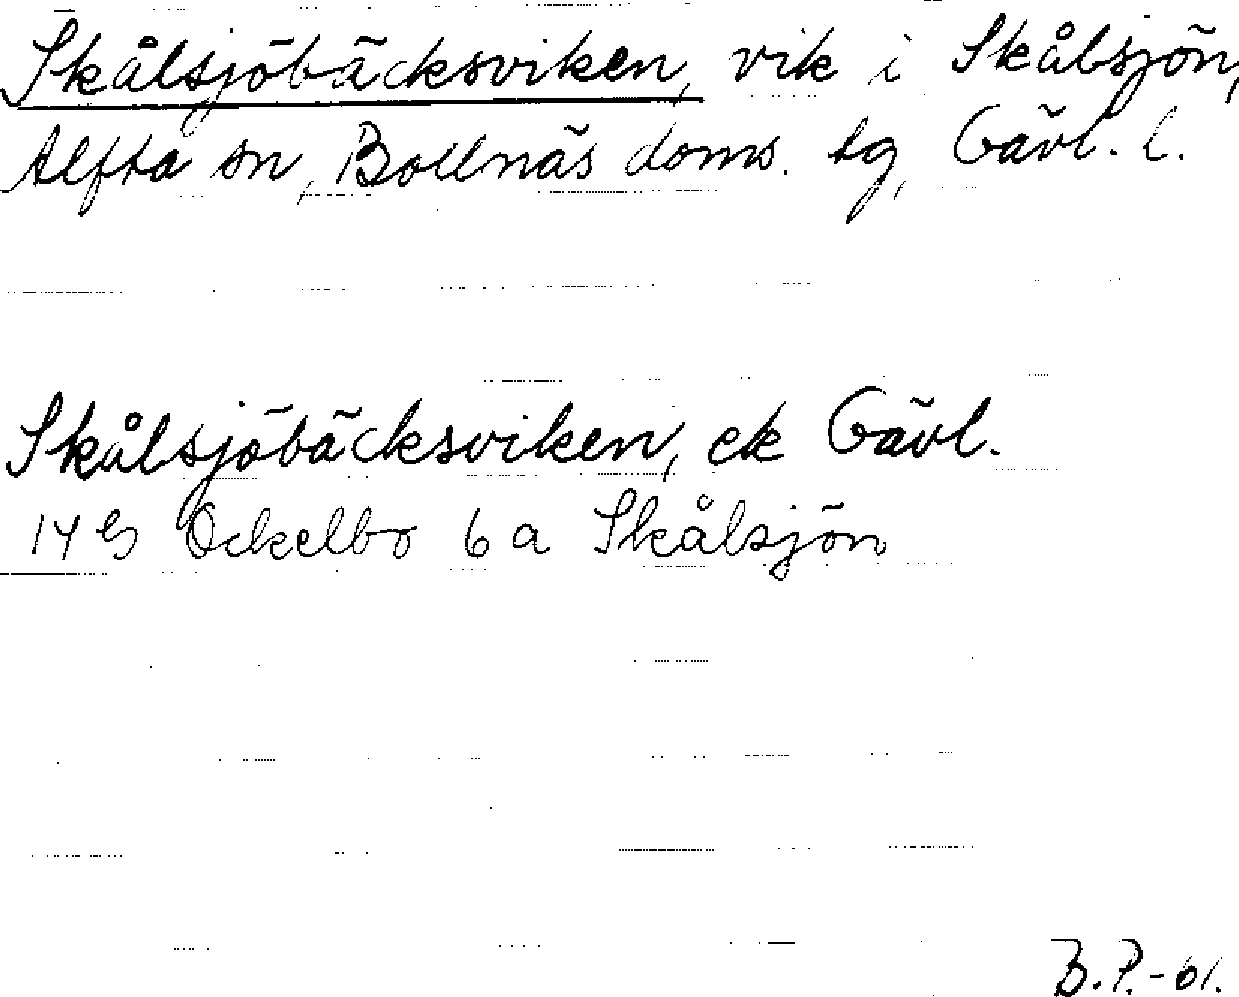 Skålsjöbäcksviken, vik i Skålsjön,
Alfta sn, Bollnäs doms. tg, Gävl. l.
Skålsjöbäcksviken, ek Gävl.
Ockelbo 6 a Skålsjön
B.P.-61.